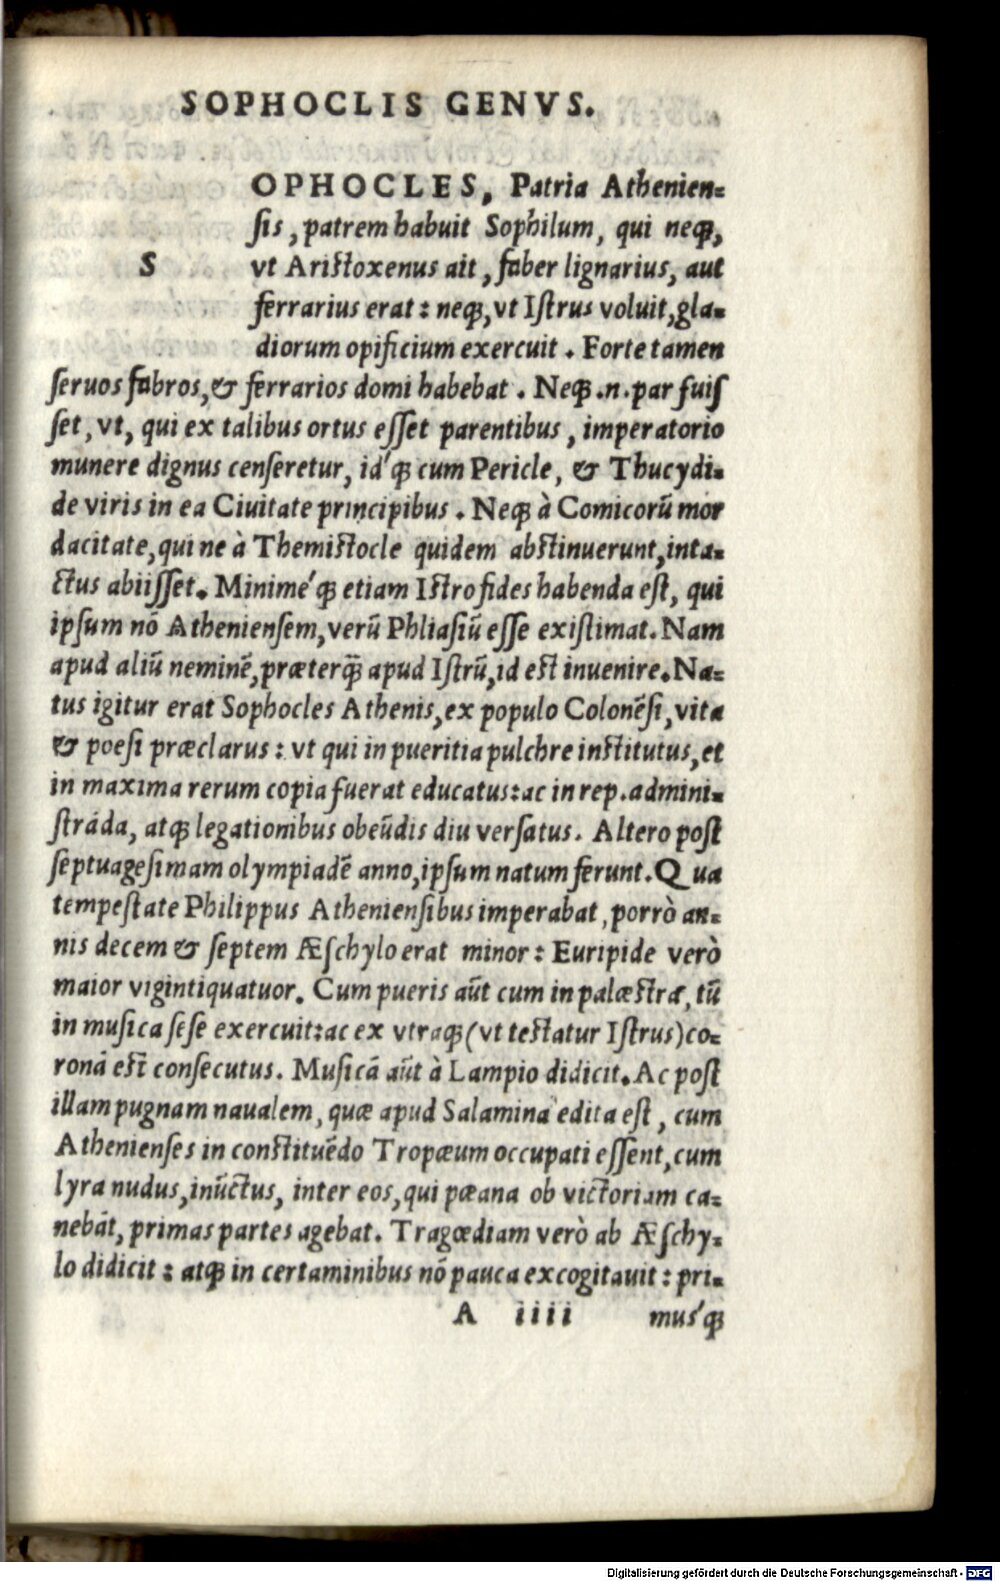 SOPHOCLIS GENVS.
SOPHOCLES, Patria Athenien-
sis, patrem habuit Sophilum, qui neqꝫ,
vt Aristoxenus ait, faber lignarius, aut
ferrarius erat: neqꝫ, vt Istrus voluit, gla-
diorum opificium exercuit. Forte tamen
seruos fabros, & ferrarios domi habebat. Neqꝫ .n. par fuis
set, vt, qui ex talibus ortus esset parentibus, imperatorio
munere dignus censeretur, id´qꝫ cum Pericle, & Thucydi-
de viris in ea Ciuitate principibus. Neqꝫ à Comicorū mor
dacitate, qui ne à Themistocle quidem abstinuerunt, inta-
ctus abiisset. Minimé´qꝫ etiam Istro fides habenda est, qui
ipsum nō Atheniensem, verū Phliasiū esse existimat. Nam
apud aliū neminē, præterq̃ apud Istrū, id est inuenire. Na-
tus igitur erat Sophocles Athenis, ex populo Colonēsi, vita
& poesi præclarus: vt qui in pueritia pulchre institutus, et
in maxima rerum copia fuerat educatus: ac in rep. admini-
strāda, atqꝫ legationibus obeūdis diu versatus. Altero post
septuagesimam olympiadē anno, ipsum natum ferunt. Qua
tempestate Philippus Atheniensibus imperabat, porrò an-
nis decem & septem Æschylo erat minor: Euripide verò
maior vigintiquatuor. Cum pueris aūt cum in palæstra, tū
in musica sese exercuit: ac ex vtraqꝫ (vt testatur Istrus) co-
ronā est consecutus. Musicā aūt à Lampio didicit. Ac post
illam pugnam naualem, quæ apud Salamina edita est, cum
Athenienses in constituēdo Tropæum occupati essent, cum
lyra nudus, inūctus, inter eos, qui pæana ob victoriam ca-
nebāt, primas partes agebat. Tragœdiam verò ab Æschy-
lo didicit: atqꝫ in certaminibus nō pauca excogitauit: pri-
A iiii mus´qꝫ
Digitalisierung gefördert durch die Deutsche Forschungsgemeinschaft - DFG